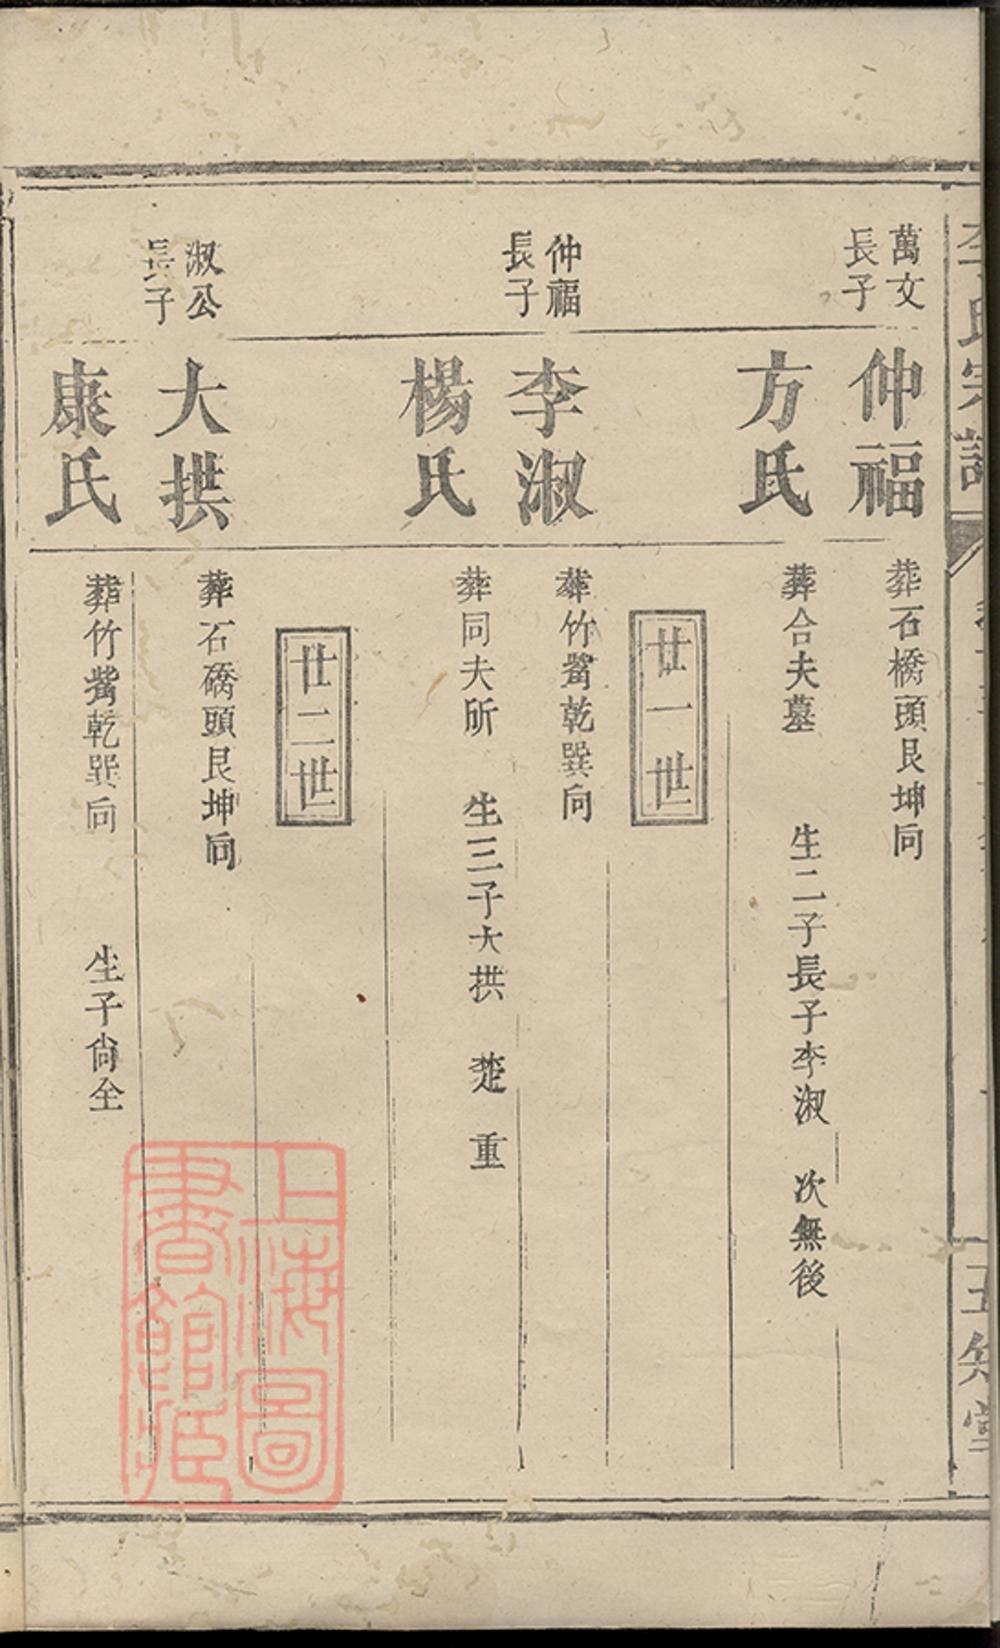 李氏宗譜
五知堂
萬文
長子
仲福
葬石橋頭艮坤向
方氏
葬合夫墓 生二子長子李淑 次無後
廿一世
仲福
長子
李淑
葬竹觜乾巽向
楊氏
葬同夫所 生三子大拱 楚 重
廿二世
淑公
長子
大拱
葬石磡頭艮坤向
康氏
葬竹觜乾巽向 生子尙全
上海圖
書館藏